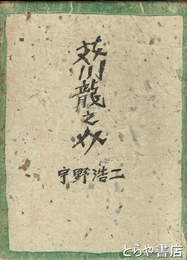 芥川龍之介
宇野浩二
とらや書店